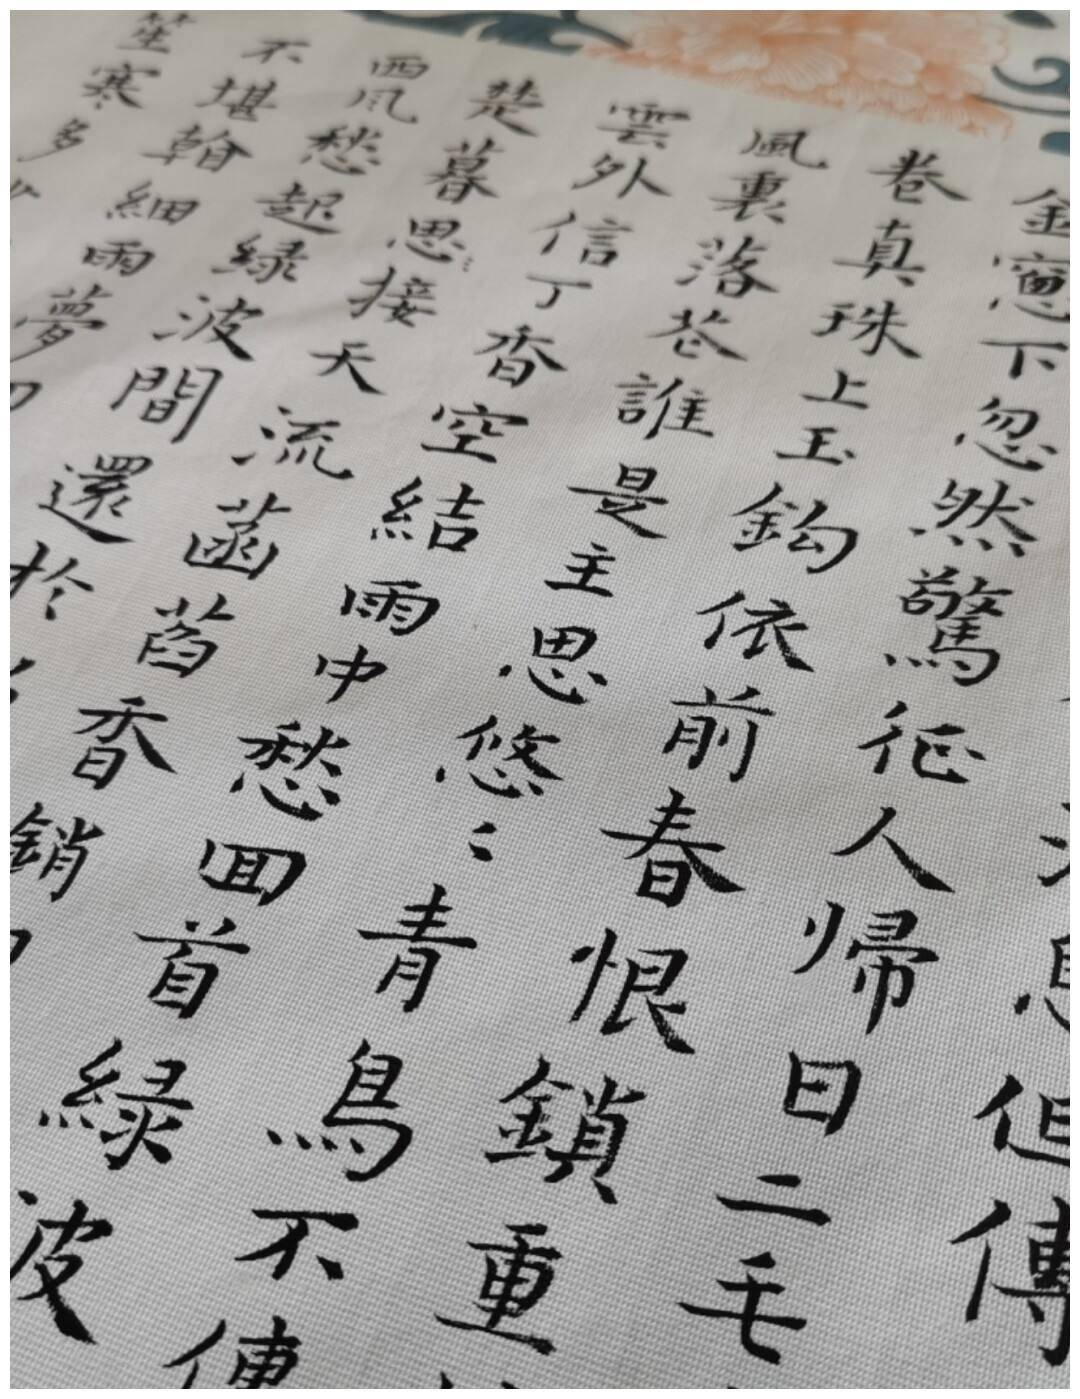 息但傳
金窻下忽然驚征人帰日二毛
卷真珠上玉鈎依前春恨鎖重
風裏落花誰是主思悠々青鳥不傳
雲外信丁香空結雨中愁囬首緑波
楚暮思接天流菡萏香銷
西风愁起緑波間還於
不堪𠦝細雨夢
笙寒多